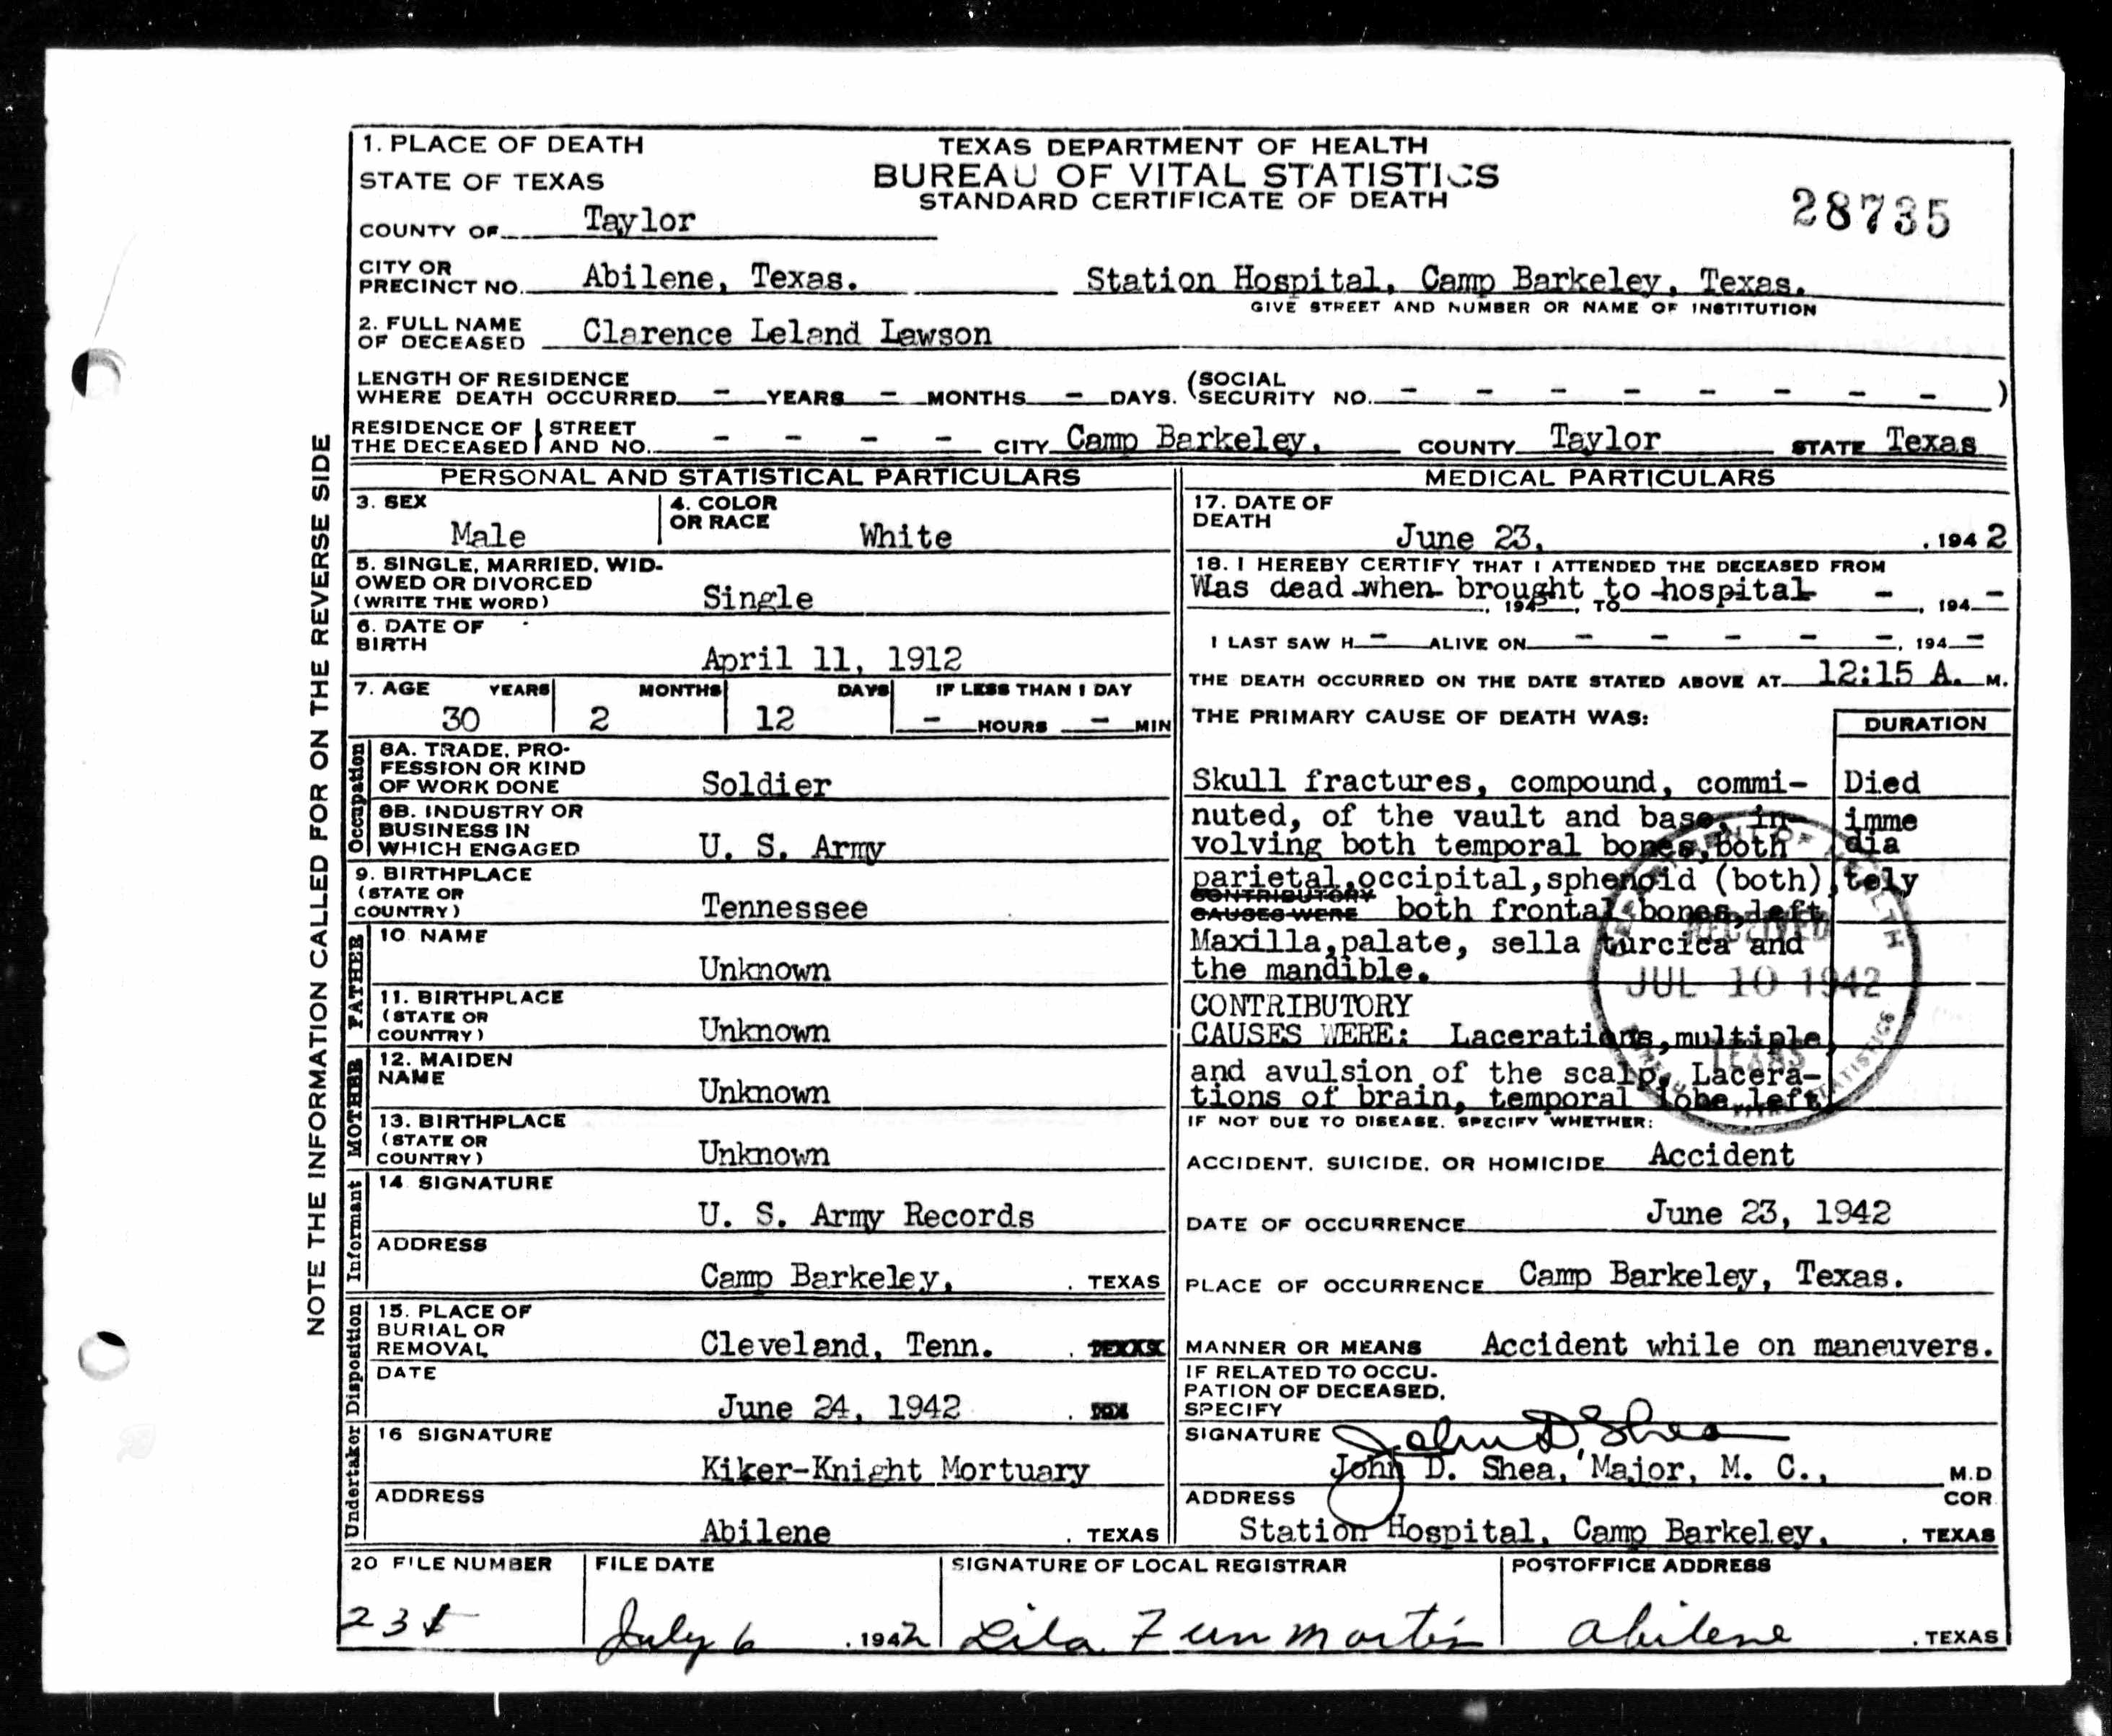 1. PLACE OF DEATH
STATE OF TEXAS
COUNTY OF Taylor
TEXAS DEPARTMENT OF HEALTH
BUREAU OF VITAL STATISTICS
STANDARD CERTIFICATE OF DEATH
28735
CITY OR
PRECINCT NO. Abilene, Texas. Station Hospital, Camp Barkeley, Texas.
GIVE STREET AND NUMBER OR NAME OF INSTITUTION
2. FULL NAME
OF DECEASED Clarence Leland Lawson
LENGTH OF RESIDENCE
WHERE DEATH OCCURRED - YEARS - MONTHS - DAYS. (SOCIAL
SECURITY NO. - - - - - - - - )
RESIDENCE OF THE DECEASED | STREET AND NO. - - - - CITY Camp Barkeley, COUNTY Taylor STATE Texas
NOTE THE INFORMATION CALLED FOR ON THE REVERSE SIDE
PERSONAL AND STATISTICAL PARTICULARS
3. SEX
Male
4. COLOR
OR RACE White
5. SINGLE, MARRIED, WID-
OWED OR DIVORCED
(WRITE THE WORD) Single
6. DATE OF
BIRTH April 11, 1912
7. AGE YEARS MONTHS DAYS IF LESS THAN 1 DAY
30 2 12 - HOURS - MIN
Occupation
8A. TRADE, PRO-
FESSION OR KIND
OF WORK DONE Soldier
8B. INDUSTRY OR
BUSINESS IN
WHICH ENGAGED U. S. Army
9. BIRTHPLACE
(STATE OR
COUNTRY) Tennessee
FATHER
10 NAME
Unknown
11. BIRTHPLACE
(STATE OR
COUNTRY) Unknown
MOTHER
12. MAIDEN
NAME Unknown
13. BIRTHPLACE
(STATE OR
COUNTRY) Unknown
Informant
14 SIGNATURE
U. S. Army Records
ADDRESS
Camp Barkeley, . TEXAS
Disposition
15. PLACE OF
BURIAL OR
REMOVAL Cleveland, Tenn.
DATE
June 24, 1942
Undertaker
16 SIGNATURE
Kiker-Knight Mortuary
ADDRESS
Abilene . TEXAS
MEDICAL PARTICULARS
17. DATE OF
DEATH June 23, , 1942
18. I HEREBY CERTIFY THAT I ATTENDED THE DECEASED FROM
Was dead when brought to hospital - -
, 194 , TO , 194
I LAST SAW H - ALIVE ON - - - - - , 194 -
THE DEATH OCCURRED ON THE DATE STATED ABOVE AT 12:15 A. M.
THE PRIMARY CAUSE OF DEATH WAS: DURATION
Skull fractures, compound, commi- Died
nuted, of the vault and base, in- imme
volving both temporal bones,both dia
parietal,occipital,sphenoid (both), tely
CONTRIBUTORY
CAUSES WERE both frontal bones,left
Maxilla,palate, sella turcica and
the mandible.
CONTRIBUTORY
CAUSES WERE: Lacerations,multiple,
and avulsion of the scalp. Lacera-
tions of brain, temporal lobe left
RECEIVED
JUL 10 1942
TEXAS
IF NOT DUE TO DISEASE, SPECIFY WHETHER:
ACCIDENT, SUICIDE, OR HOMICIDE Accident
DATE OF OCCURRENCE June 23, 1942
PLACE OF OCCURRENCE Camp Barkeley, Texas.
MANNER OR MEANS Accident while on maneuvers.
IF RELATED TO OCCU-
PATION OF DECEASED,
SPECIFY
SIGNATURE John D Shea
John D. Shea, Major, M. C., M.D
ADDRESS COR
Station Hospital, Camp Barkeley, . TEXAS
20 FILE NUMBER FILE DATE SIGNATURE OF LOCAL REGISTRAR POSTOFFICE ADDRESS
July 6 , 1942 Lila Fun Martin Abilene . TEXAS